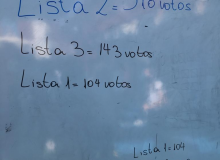 Lista 2 = 310 votos
Lista 3 = 143 votos
Lista 1 = 104 votos
Lista 1 = 104